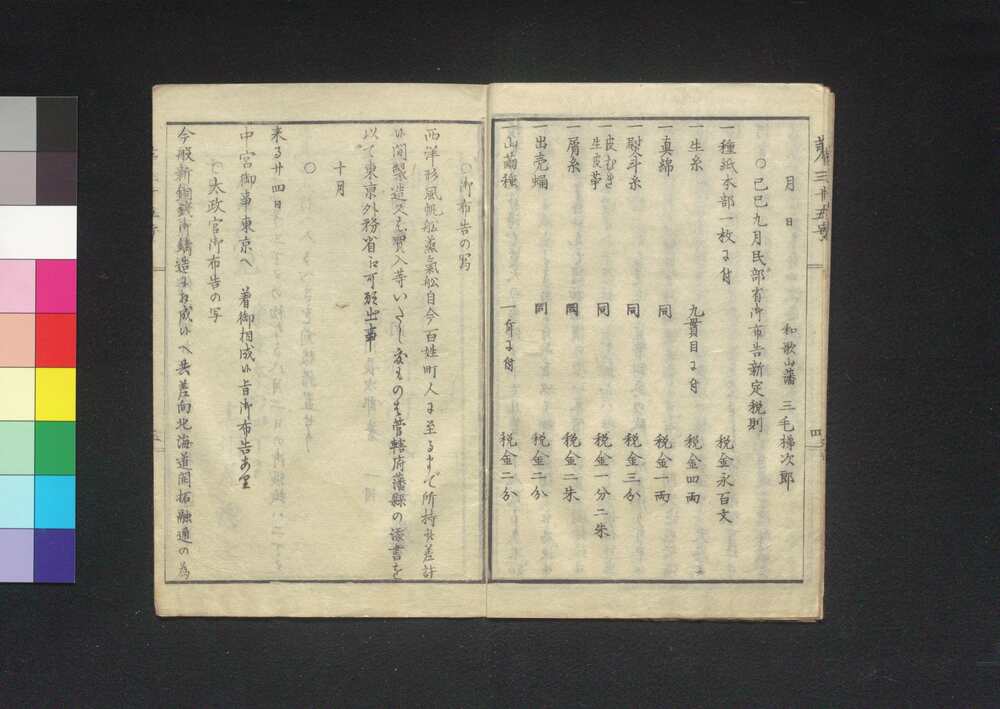 第三十五号
四
月　日
和歌山藩　三毛揲次郎
〇己巳九月民部省御布告新定税則
一種紙本部一枚ニ付　税金永百文
一生糸　九貫目ニ付　税金四両
一真綿　同　税金一両
一熨斗糸　同　税金三分
一皮むき
生皮苧　同　税金一分二朱
一屑糸　同　税金二朱
一出売蛹　同　税金二分
一山繭種　一斤ニ付　税金二分
〇御布告の写
西洋形風帆船蒸氣舩自今百姓町人ニ至るまで所持被差許
候間製造又は買入等いたし度ものは管轄府藩縣の添書を
以て東京外務省江可願出事
十月
〇
来る廿四日
中宮御事東京へ　着御相成候旨御布告あり
〇太政官御布告の写
今般新銅銭御鋳造相成候へ共差向北海道開拓融通の為